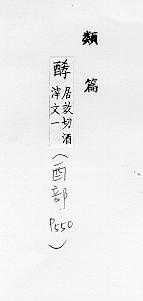 類篇
酵
居效切酒
滓文一
(酉部 P550)